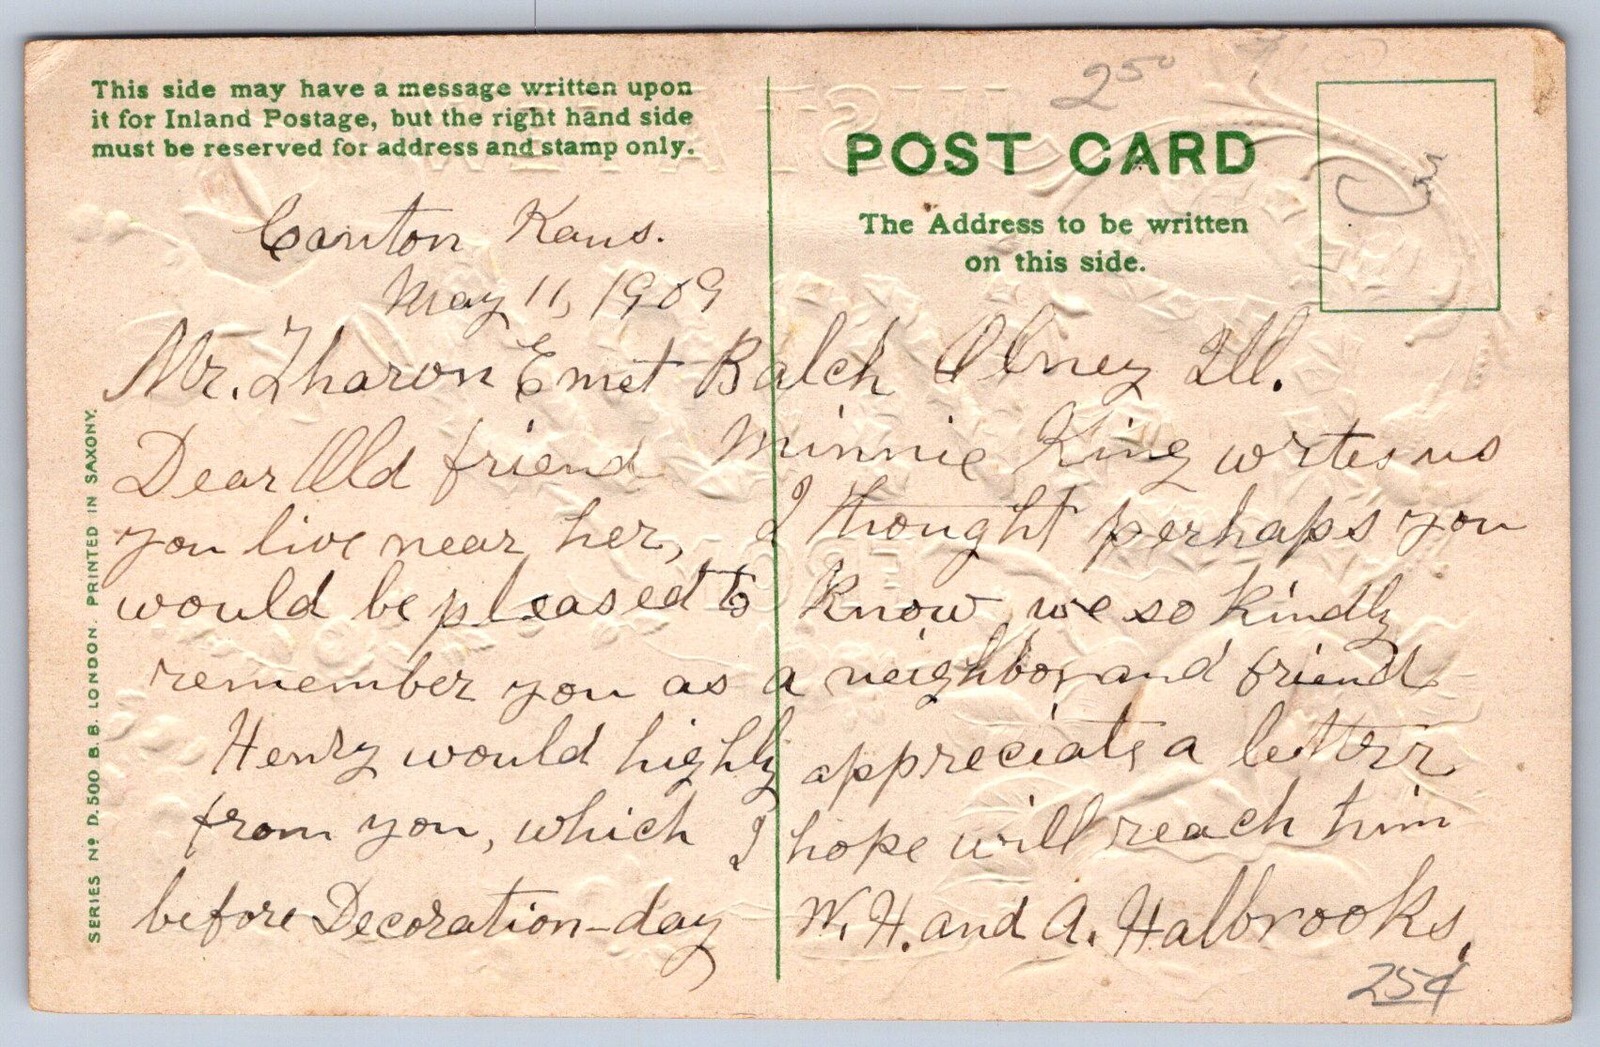 This side may have a message written upon
it for Inland Postage, but the right hand side
must be reserved for address and stamp only.
250
POST CARD
The Address to be written
on this side.
Canton Kans.
May 11, 1909
Mr. Tharon Emet Balch Olney Ill.
Dear Old friend Minnie King writes us
you live near her, I thought perhaps you
would be pleased to know we so kindly
remember you as a neighbor and friend
Henry would highly appreciate a letterr
from you, which I hope will reach him
before Decoration-day W. H. and A. Halbrooks.
25¢
SERIES No D.500 B.B. LONDON. PRINTED IN SAXONY.